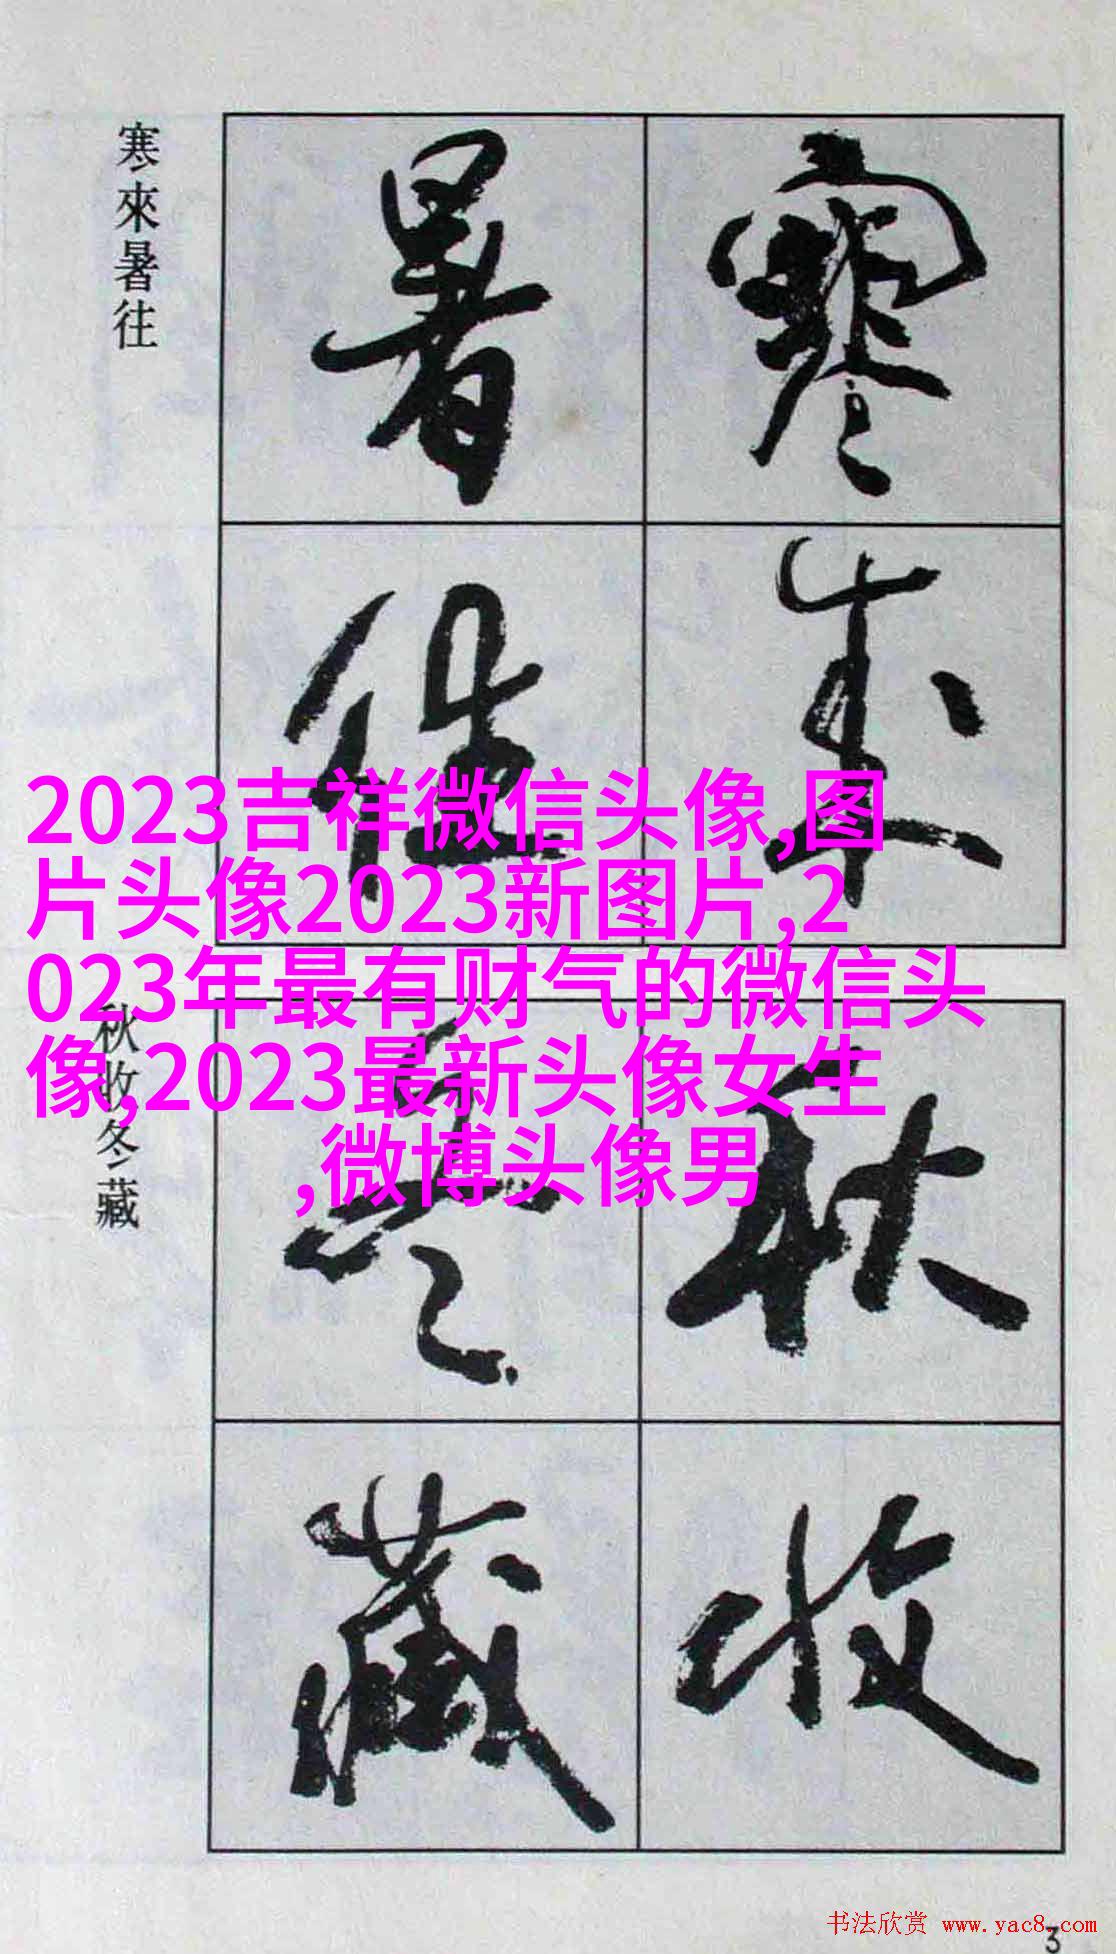 寒來暑往
寒
來
暑
往
2023吉祥微信头像,图
片头像2023新图片,2
023年最有财气的微信头
像,2023最新头像女生
,微博头像男
秋收冬藏
秋
收
冬
藏
书法欣赏 www.yac8.com
3